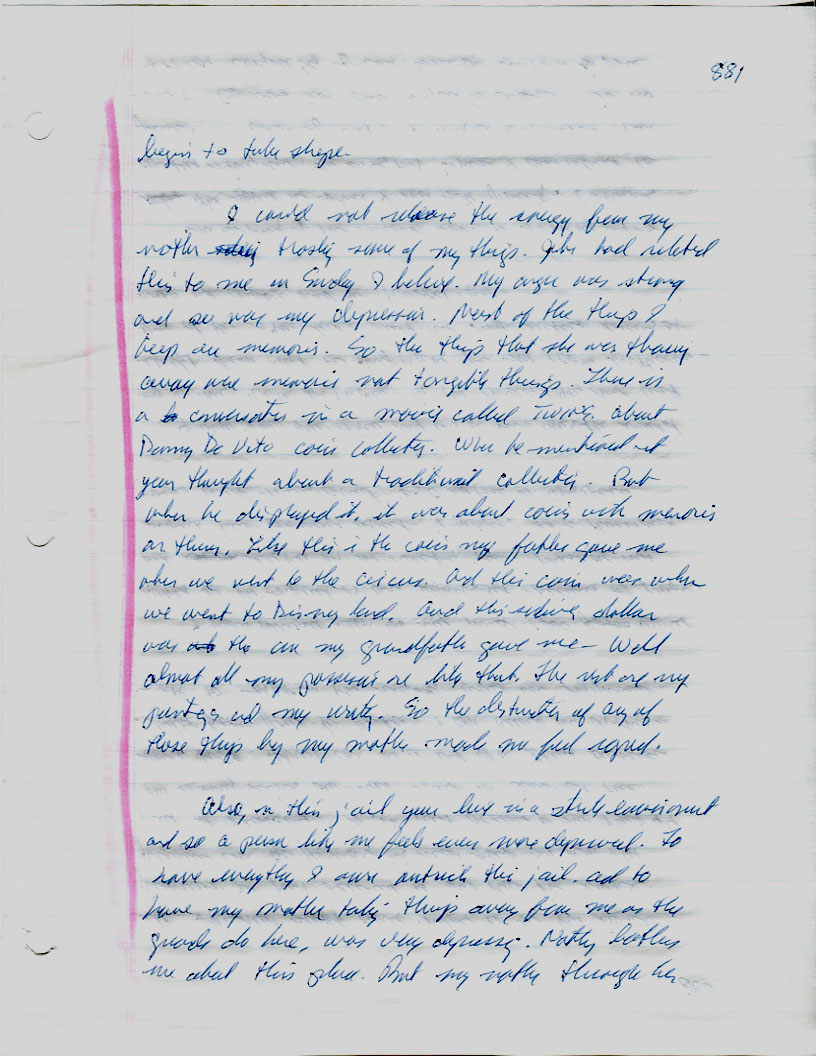 881
begin to take shape.
I could not release the energy from my
mother trashing some of my things. She had related
this to me on Sunday I believe. My anger was strong
and so was my depression. Most of the things I
keep are memories. So the things that she was throwing
away were memories not tangible things. There is
a conversation in a movie called Twins. about
Danny De Vito coin collection. When he mentioned it
your thought about a traditional collection. But
when he displayed it, it was about coins with memories
on them. Like this is the coin my father gave me
when we went to the circus. And this coin was when
we went to Disney land. And this silver dollar
was the one my grandfather gave me - Well
almost all my possessions are like that. The rest are my
paintings and my writing. So the destruction of any of
those things by my mother made me feel
Also, in this jail you live in a sterile environment
and so a person like me feels even more deprived. To
have everything I own outside this jail. and to
have my mother taking things away from me as the
guards do here, was very depressing. Nothing bothers
me about this place. But my mother through her